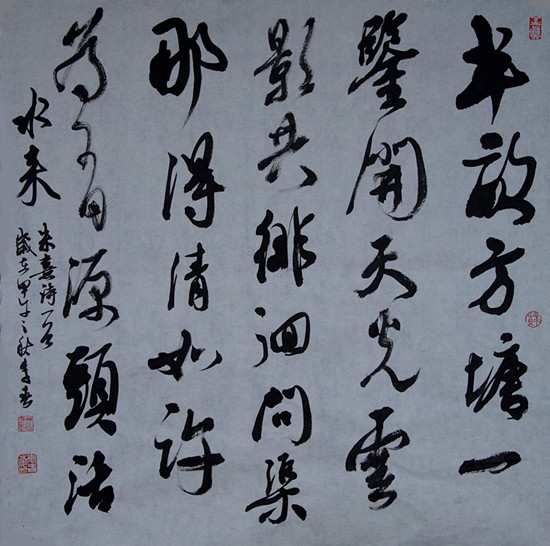 半畝方塘一
鑒開天光雲
影共徘徊問渠
那得清如許
為有源頭活
水来
朱熹詩一首
歲在甲午之秋